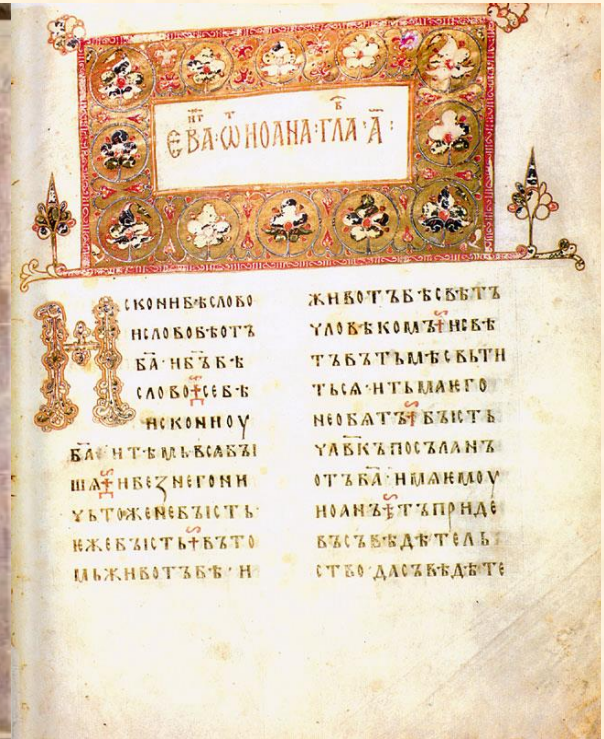 ЄВА҃НГ·Ѿ ИОАНА·ГЛАВ·А҃:
ИСКОНИБѢСЛОВО
ИСЛОВОБѢОТЪ
БА҃·ИБЪ҃БѢ
СЛОВО☩СЕБѢ
ИСКОНИОУ
БА҃·ИТѢМЬВСѦБЪІ
ШѦ☩ИБЕЗНЕГОНИ
ЧЬТОЖЕНЕБЪІСТЬ·
ѤЖЕБЪІСТЬ☩ВЪТО
МЬЖИВОТЪБѢ·И
ЖИВОТЪБѢСВѢТЪ
ЧЛОВѢКОМЪ☩ИСВѢ
ТЪВЪТЬМѢСВЬТИ
ТЬСѦ·ИТЬМАѤГО
НЕОБѦТЪ☩БЪІСТЬ
ЧЛА҃ВКЪПОСЪЛАНЪ
ОТЪБА҃·ИМѦѤМОУ
ИОАНЪ☩ТЪПРИДЕ
ВЪСЪВѢДѢТЕЛЬ
СТВО·ДАСЪВѢДѢТЕ